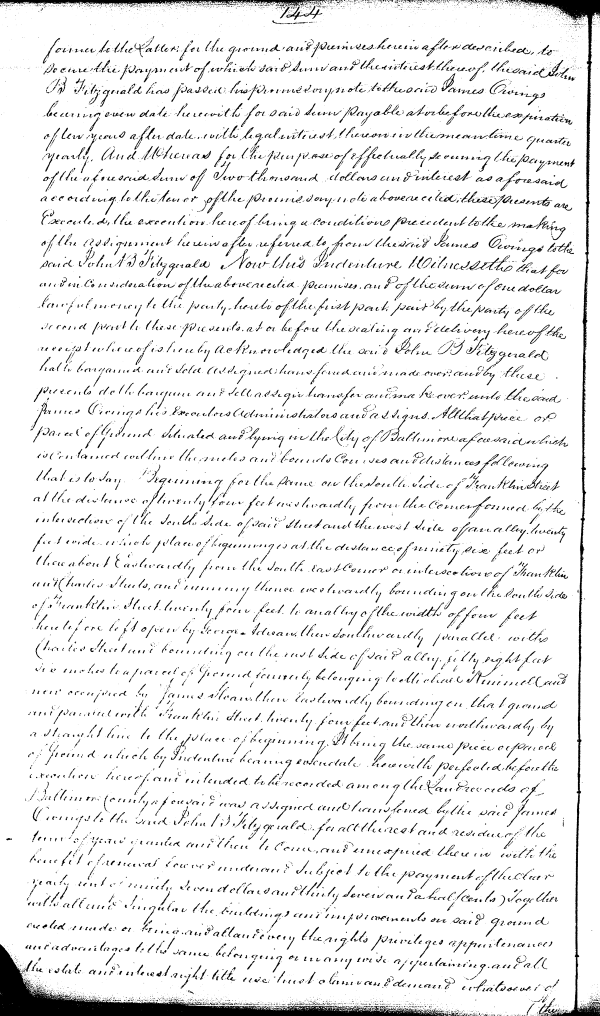 144
former to the Latter: for the ground and premises herein after described, to
secure the payment of which said sum and the interest thereof, the said John
B Fitzgerald has passed his promissory note to the said James Owings
bearing even date herewith for said sum payable at or before the expiration
of ten years after date, with legal interest thereon in the mean time quarter
yearly. And Whereas for the purpose of effectually securing the payment
of the aforesaid sum of Two thousand dollars and interest as aforesaid
according to the tenor of the promissory note above recited, these presents are
Executed, the execution hereof being a condition precedent to the making
of the assignment herein after referred to from the said James Owings to the
said John B Fitzgerald Now this Indenture Witnesseth that for
and in Consideration of the above recited premises, and of the sum of one dollar
lawful money to the party hereto of the first part, paid by the party of the
second part to these presents, at or before the sealing and delivery hereof the
receipt whereof is hereby acknowledged the said John B Fitzgerald
hath bargained and sold assigned transfered and made over, and by these
presents doth bargain and sell assign transfer and make over, unto the said
James Owings his Executors Administrators and assigns, All that piece or
parcel of Ground Situated and lying in the City of Baltimore aforesaid which
is contained within the metes and bounds Courses and distances following
that is to say Beginning for the same on the South Side of Franklin Street
at the distance of twenty four feet westwardly from the Corner formed by the
intersection of the South Side of said Street and the west Side of an alley, twenty
feet wide, which place of beginning is at the distance of ninety six feet or
thereabout Eastwardly from the South East Corner or intersection of Franklin
and Charles Streets, and running thence westwardly bounding on the South Side
of Franklin Street twenty four feet to an alley of the width of four feet
heretofore left open by George then Southwardly parallel with
Charles Street and bounding on the east Side of said alley, fifty eight feet
six inches to a parcel of Ground formerly belonging to Michael Kimmell and
now occupied by James Sloan, then Eastwardly bounding on that ground
and parallel with Franklin Street, twenty four feet and then northwardly by
a straight line to the place of beginning, It being the same piece or parcel
of Ground which by Indenture bearing even date herewith perfected before the
execution hereof and intended to be recorded among the Land records of
Baltimore County aforesaid was assigned and transfered by the said James
Owings to the said John B Fitzgerald, for all the rest and residue of the
term of years granted and then to Come, and unexpired therein with the
benefit of renewal forever under and Subject to the payment of the Clear
yearly rent of ninety Seven dollars and thirty Seven and a half Cents) Together
with all and Singular the buildings and improvements on said ground
erected made or being, and all and every the rights privileges appurtenances
and advantages to the same belonging or in any wise appertaining, and all
the estate and interest right title use trust claim and demand whatsoever of
(the